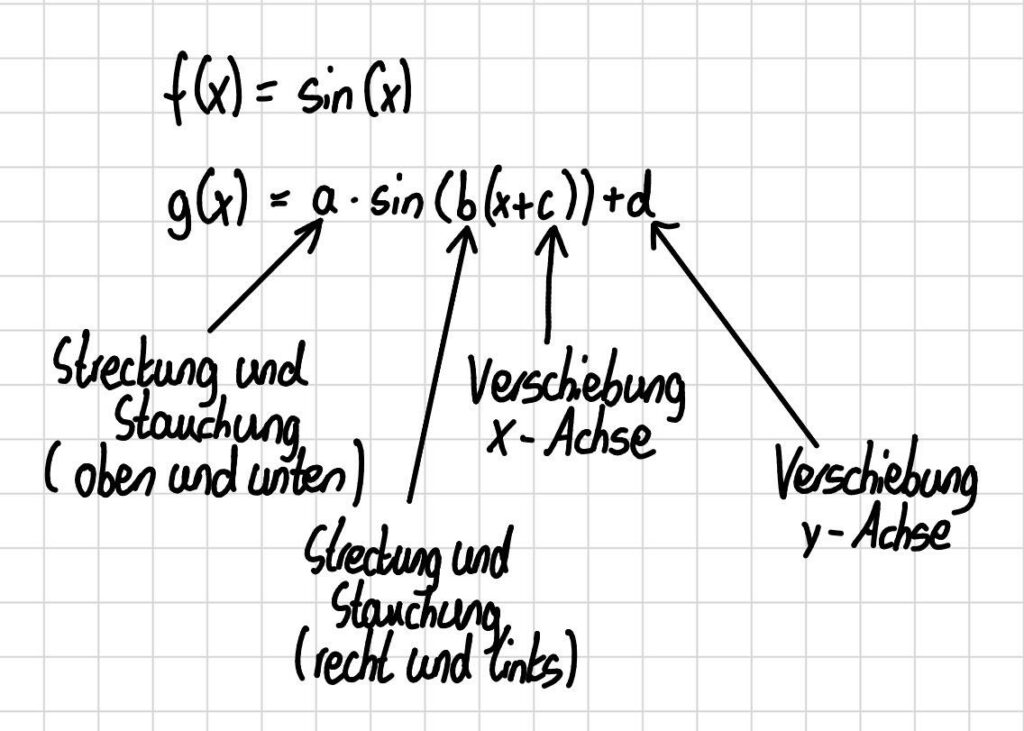 f(x) = sin(x)
g(x) = a · sin(b(x+c)) + d
Streckung und
Stauchung
(oben und unten)
Streckung und
Stauchung
(recht und links)
Verschiebung
X-Achse
Verschiebung
y-Achse